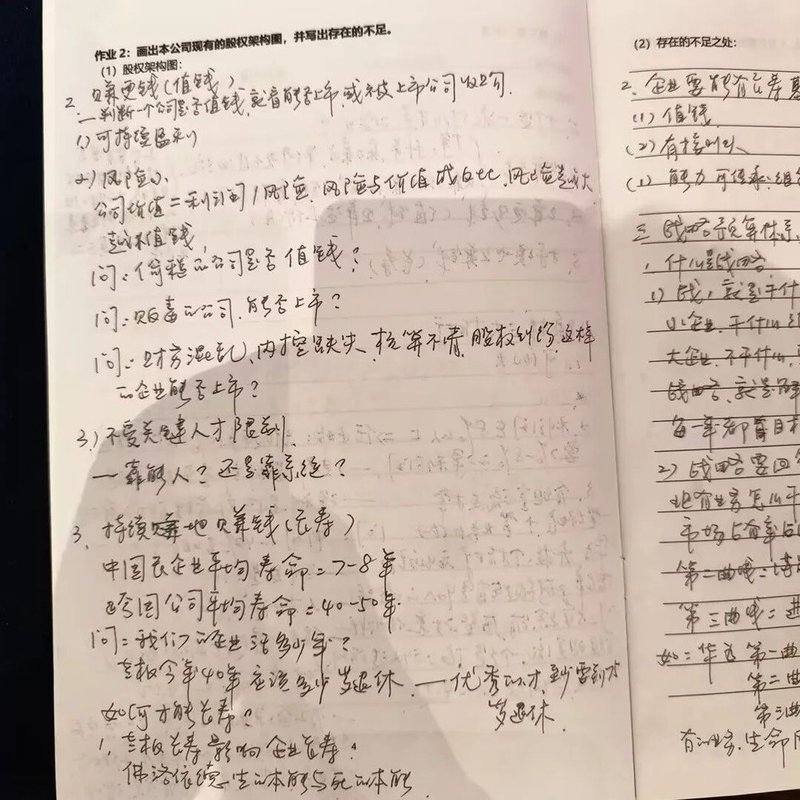 作业2：画出本公司现有的股权架构图，并写出存在的不足。
（1）股权架构图：
2. 赚更钱（值钱）
一判断一个公司是否值钱，就看能否上市，或被上市公司收购
1）可持续盈利
2）风险小
公司价值=利润/风险，风险与价值成反比，风险越大
越不值钱
问：偷税的公司是否值钱？
问：贩毒的公司，能否上市？
问：财务混乱，内控缺失，核算不清，股权纠纷，这样
的企业能否上市？
3）不受关键人才限制
一靠能人？还是靠系统？
3. 持续地赚钱（长寿）
中国民企业平均寿命=7-8年
跨国公司平均寿命=40-50年
问：我们的企业活多少年？
老板今年40年 应该多少岁退休 一优秀的才 至少要到
岁退休
如何才能长寿？
1. 老板长寿影响企业长寿：
佛洛依德 生的本能与死的本能
（2）存在的不足之处：
2. 企业要能有长寿
（1）值钱
（2）有接
（1）能力可传承：组
三 战略预算体系
1. 什么是战略
1）战，就是干什
小企业，干什么
大企业，不干什么
战略，就是
每一年都有目标
2）战略要回答
现有业务怎么干
市场占有率
第二曲线：
第三曲线：进
如：华为 第一曲
第二曲
第三曲
有的业务，生命周